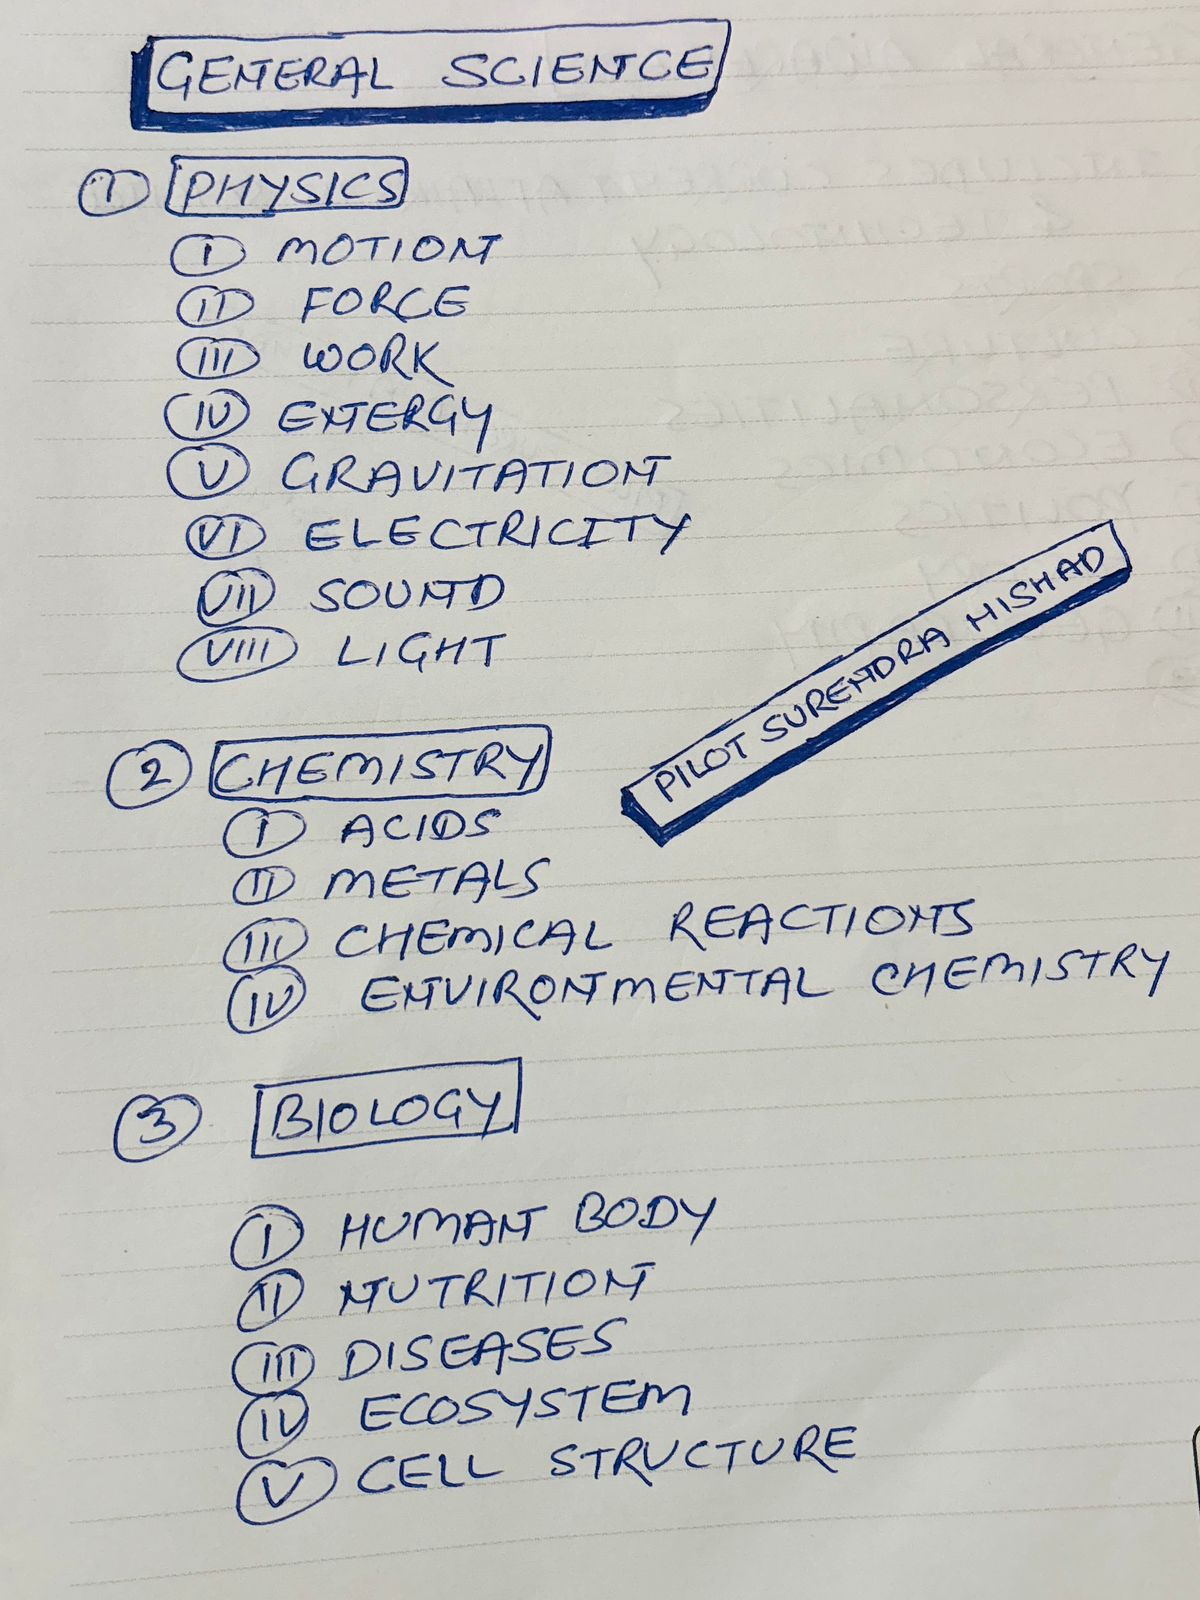 GENERAL SCIENCE
1 PHYSICS
I MOTION
II FORCE
III WORK
IV ENERGY
V GRAVITATION
VI ELECTRICITY
VII SOUND
VIII LIGHT
PILOT SURENDRA NISHAD
2 CHEMISTRY
I ACIDS
II METALS
III CHEMICAL REACTIONS
IV ENVIRONMENTAL CHEMISTRY
3 BIOLOGY
I HUMAN BODY
II NUTRITION
III DISEASES
IV ECOSYSTEM
V CELL STRUCTURE